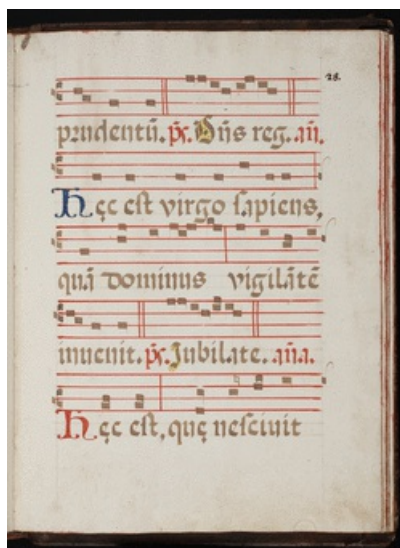 28.
prudentū. p̄s. Dn̄s reg. añ.
Hęc est virgo sapiens,
quā dominus vigilātē
inuenit. p̄s. Jubilate. aña.
Hęc est, quę nesciuit